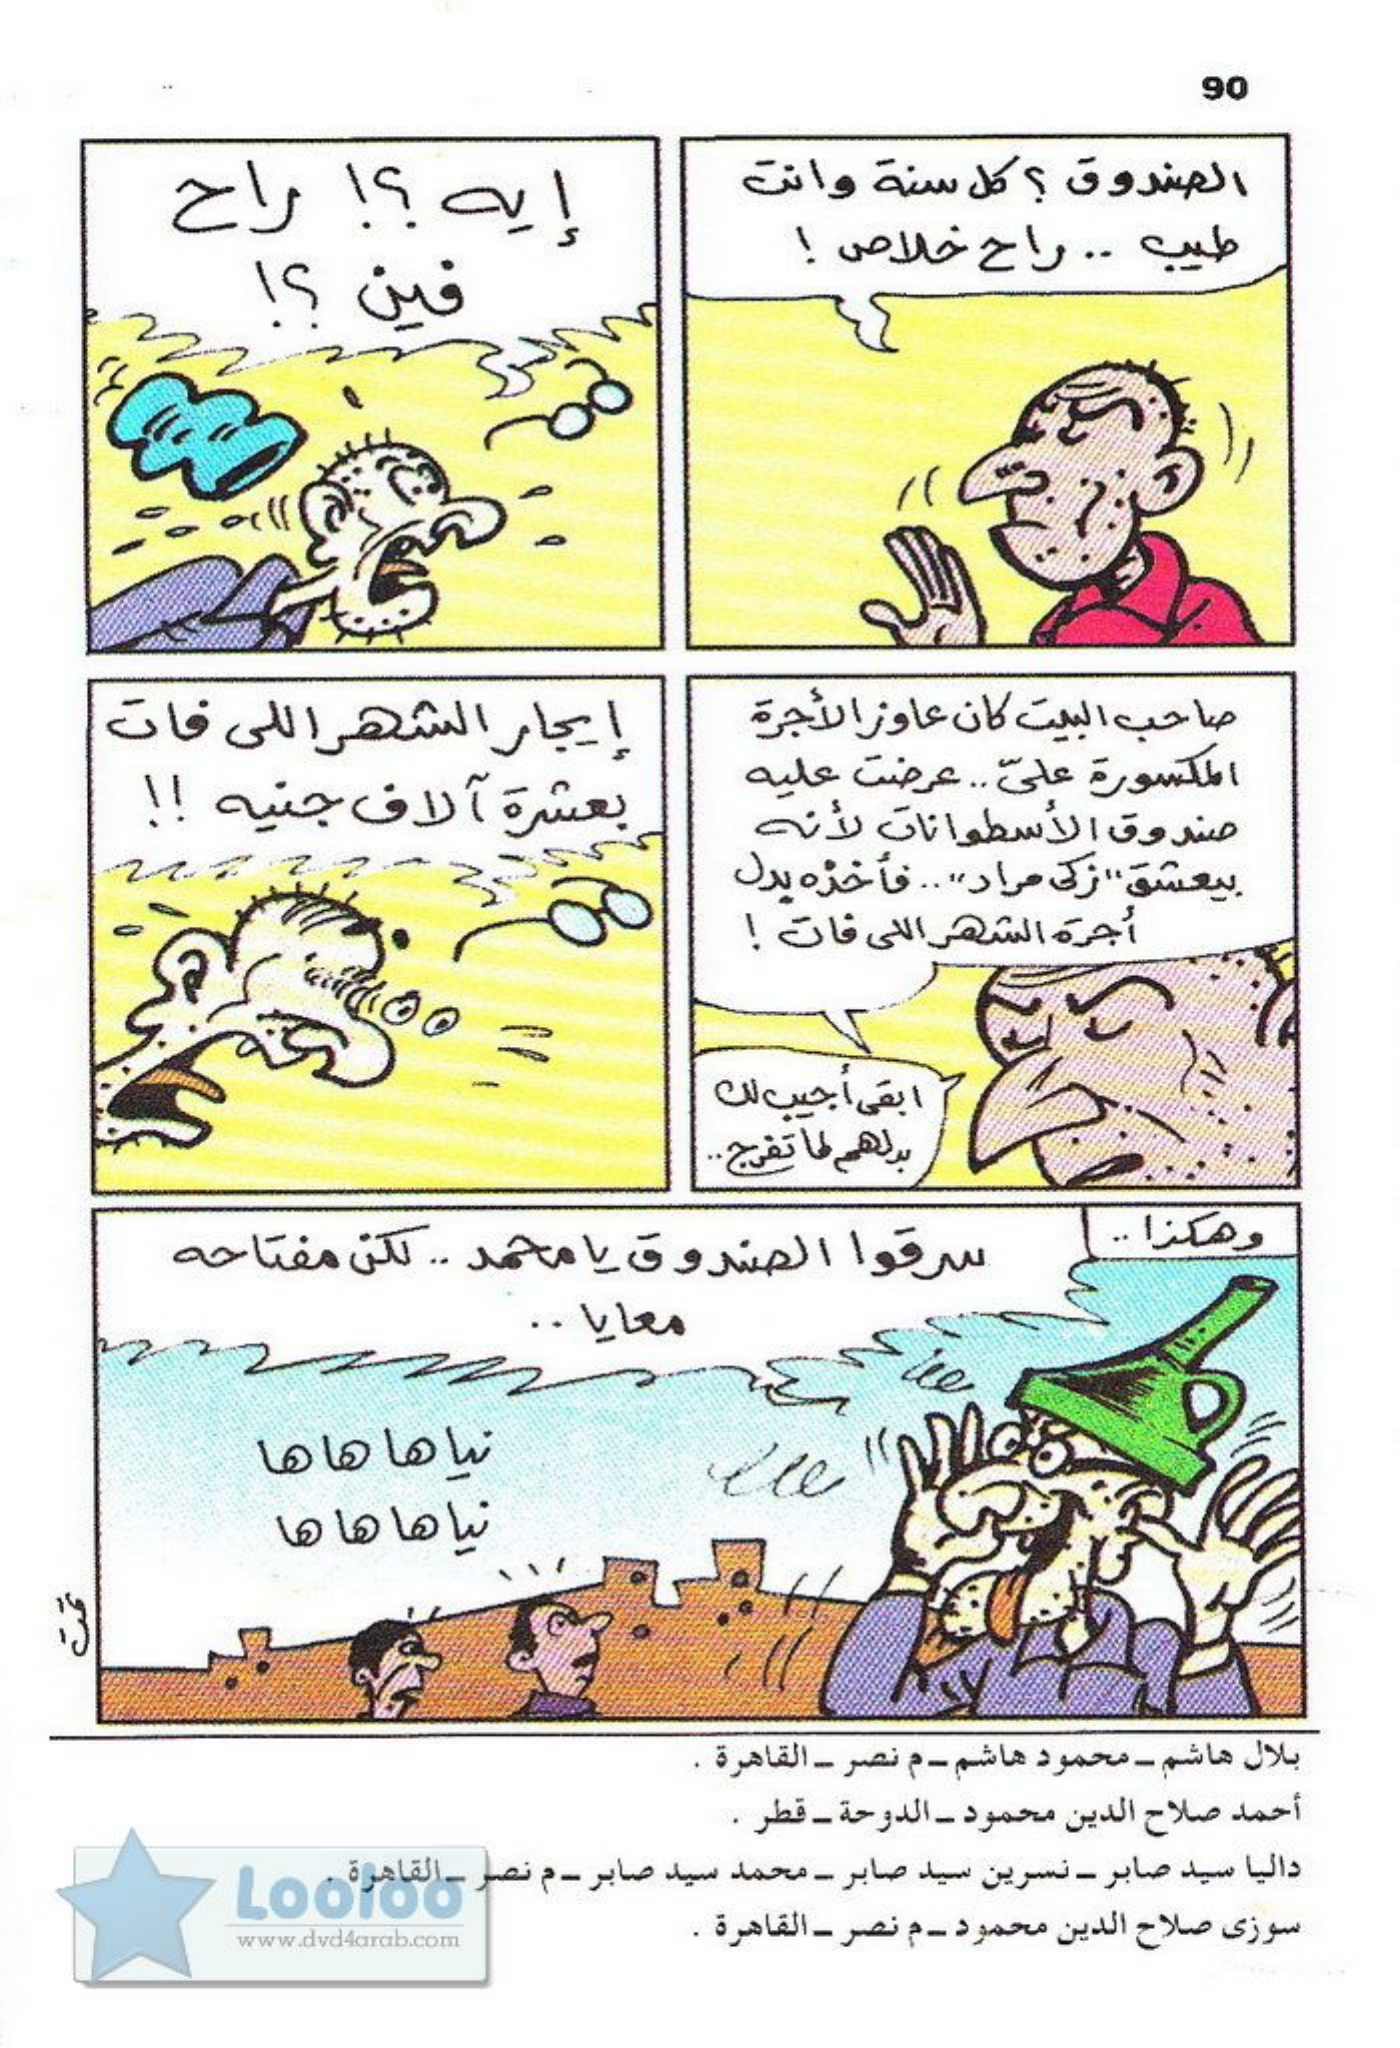 90
الصندوق ؟ كل سنة وانت
طيب .. راح خلاص !
إيه ؟! راح
فين ؟!
صاحب البيت كان عاوز الأجرة
المكسورة علىّ .. عرضت عليه
صندوق الأسطوانات لأنه
بيعشق "زكى مراد" .. فأخذه بدل
أجرة الشهر اللى فات !
ابقى أجيب لك
بدلهم لما تفرج ..
إيجار الشهر اللى فات
بعشرة آلاف جنيه !!
وهكذا ..
سرقوا الصندوق يا محمد .. لكن مفتاحه
معايا ..
نيا ها ها ها
نيا ها ها ها
تمت
بلال هاشم ــ محمود هاشم ــ م نصر ــ القاهرة .
أحمد صلاح الدين محمود ــ الدوحة ــ قطر .
داليا سيد صابر ــ نسرين سيد صابر ــ محمد سيد صابر ــ م نصر ــ القاهرة .
سوزى صلاح الدين محمود ــ م نصر ــ القاهرة .
Looloo
www.dvd4arab.com